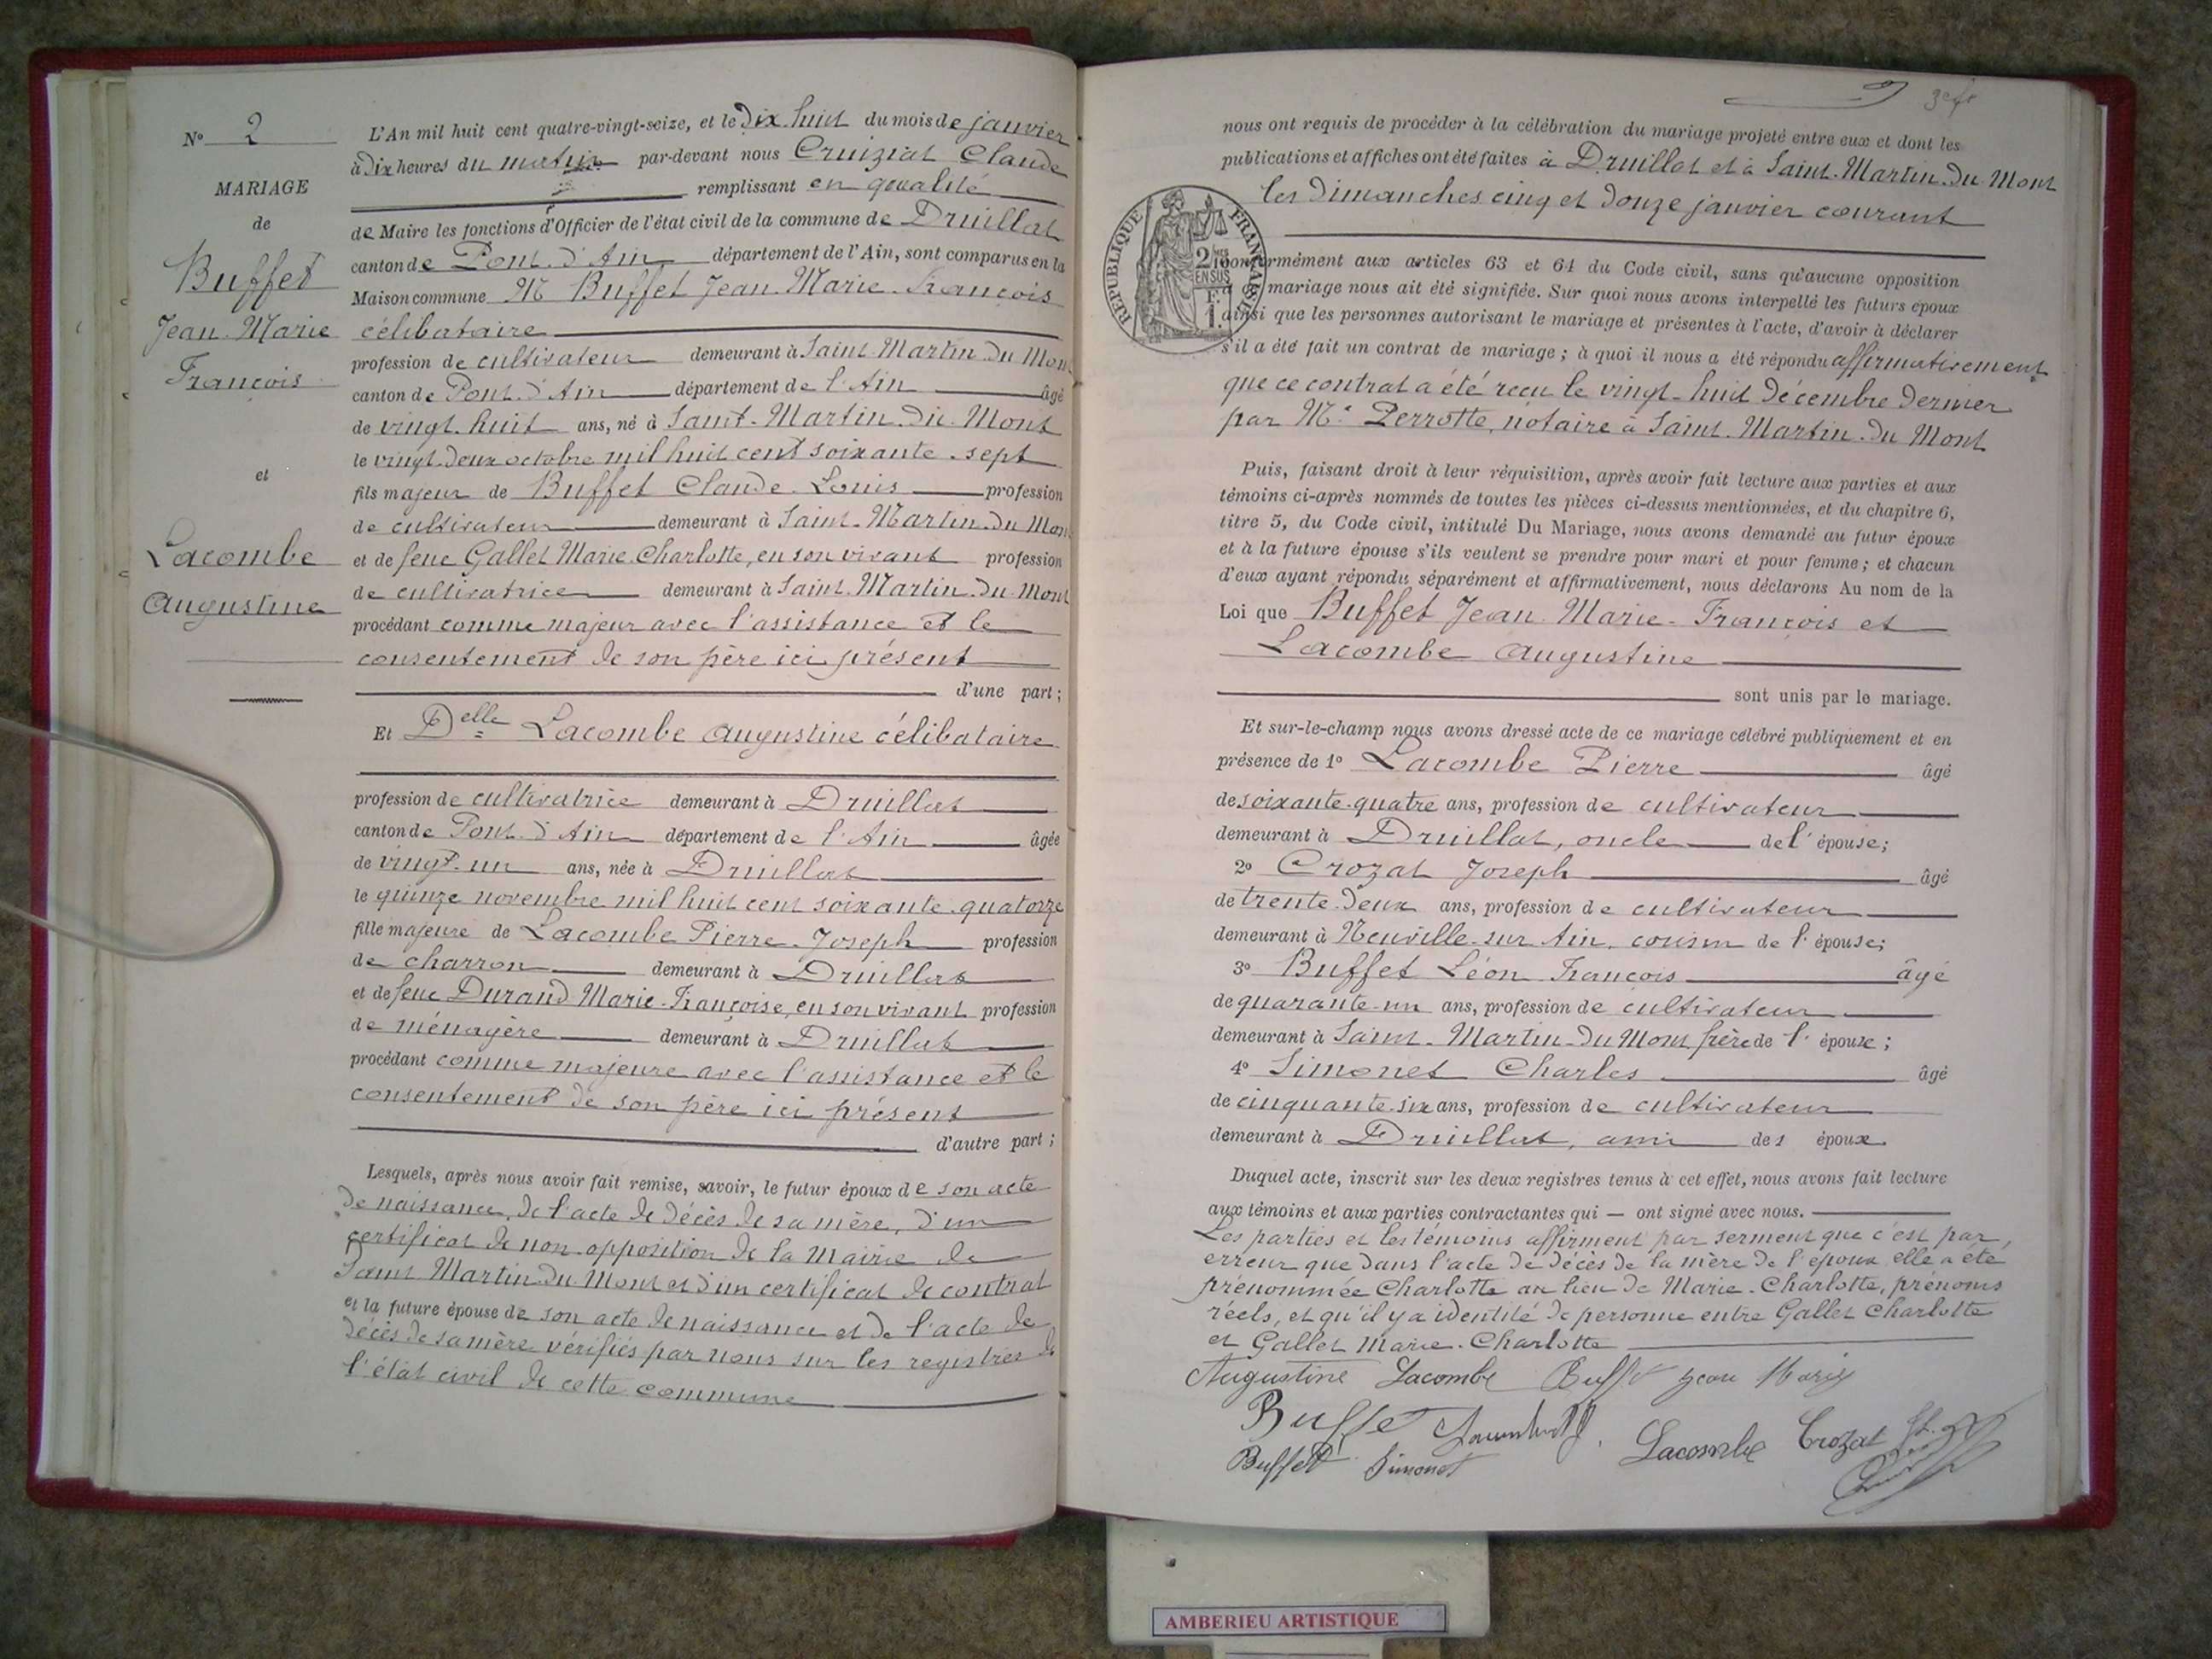 N° 2
MARIAGE
de
Buffet
Jean-Marie
François
et
Lacombe
Augustine
L'An mil huit cent quatre-vingt-seize, et le Dix huit du mois de janvier
à Dix heures du matin par-devant nous Cruiziat Claude
remplissant en qualité
de Maire les fonctions d'Officier de l'état civil de la commune de Druillat
canton de Pont d'Ain département de l'Ain, sont comparus en la
Maison commune M Buffet Jean-Marie-François
célibataire
profession de cultivateur demeurant à Saint Martin du Mont
canton de Pont d'Ain département de l'Ain âgé
de vingt-huit ans, né à Saint-Martin-du-Mont
le vingt-deux octobre mil huit cent soixante-sept
fils majeur de Buffet Claude-Louis profession
de cultivateur demeurant à Saint-Martin-du Mont
et de feue Gallet Marie Charlotte, en son vivant profession
de cultivatrice demeurant à Saint-Martin-du-Mont
procédant comme majeur avec l'assistance et le
consentement de son père ici présent
d'une part;
Et Delle Lacombe Augustine célibataire
profession de cultivatrice demeurant à Druillat
canton de Pont d'Ain département de l'Ain âgée
de vingt-un ans, née à Druillat
le quinze novembre mil huit cent soixante-quatorze
fille majeure de Lacombe Pierre-Joseph profession
de charron demeurant à Druillat
et de feue Durand Marie-Françoise, en son vivant profession
de ménagère demeurant à Druillat
procédant comme majeure avec l'assistance et le
consentement de son père ici présent
d'autre part;
Lesquels, après nous avoir fait remise, savoir, le futur époux de son acte
de naissance, de l'acte de décès de sa mère, d'un
certificat de non-opposition de la Mairie de
Saint Martin-du-Mont et d'un certificat de contrat
et la future épouse de son acte de naissance et de l'acte de
décès de sa mère vérifiés par nous sur les registres de
l'état civil de cette commune
nous ont requis de procéder à la célébration du mariage projeté entre eux et dont les
publications et affiches ont été faites à Druillat et à Saint-Martin-du-Mont
les Dimanches cinq et douze janvier courant
RÉPUBLIQUE FRANÇAISE
2
EN SUS
conformément aux articles 63 et 64 du Code civil, sans qu'aucune opposition
mariage nous ait été signifiée. Sur quoi nous avons interpellé les futurs époux
ainsi que les personnes autorisant le mariage et présentes à l'acte, d'avoir à déclarer
s'il a été fait un contrat de mariage; à quoi il nous a été répondu affirmativement
que ce contrat a été reçu le vingt-huit décembre dernier
par Me Perrotte, notaire à Saint-Martin-du Mont
Puis, faisant droit à leur réquisition, après avoir fait lecture aux parties et aux
témoins ci-après nommés de toutes les pièces ci-dessus mentionnées, et du chapitre 6,
titre 5, du Code civil, intitulé Du Mariage, nous avons demandé au futur époux
et à la future épouse s'ils veulent se prendre pour mari et pour femme; et chacun
d'eux ayant répondu séparément et affirmativement, nous déclarons Au nom de la
Loi que Buffet Jean-Marie-François et
Lacombe Augustine
sont unis par le mariage.
Et sur-le-champ nous avons dressé acte de ce mariage célébré publiquement et en
présence de 1° Lacombe Pierre âgé
de soixante-quatre ans, profession de cultivateur
demeurant à Druillat, oncle de l'épouse;
2° Crozat Joseph âgé
de trente-deux ans, profession de cultivateur
demeurant à Neuville-sur Ain, cousin de l'épouse;
3° Buffet Léon François âgé
de quarante-un ans, profession de cultivateur
demeurant à Saint-Martin-du Mont frère de l'époux;
4° Simonet Charles âgé
de cinquante-six ans, profession de cultivateur
demeurant à Druillat, ami des époux.
Duquel acte, inscrit sur les deux registres tenus à cet effet, nous avons fait lecture
aux témoins et aux parties contractantes qui — ont signé avec nous.
Les parties et les témoins affirment par serment que c'est par
erreur que dans l'acte de décès de la mère de l'époux elle a été
prénommée Charlotte au lieu de Marie-Charlotte, prénoms
réels, et qu'il y a identité de personne entre Gallet Charlotte
et Gallet Marie-Charlotte
Augustine Lacombe Buffet jean Marie
Buffet Lacombe Crozat
Buffet Simonet
AMBERIEU ARTISTIQUE